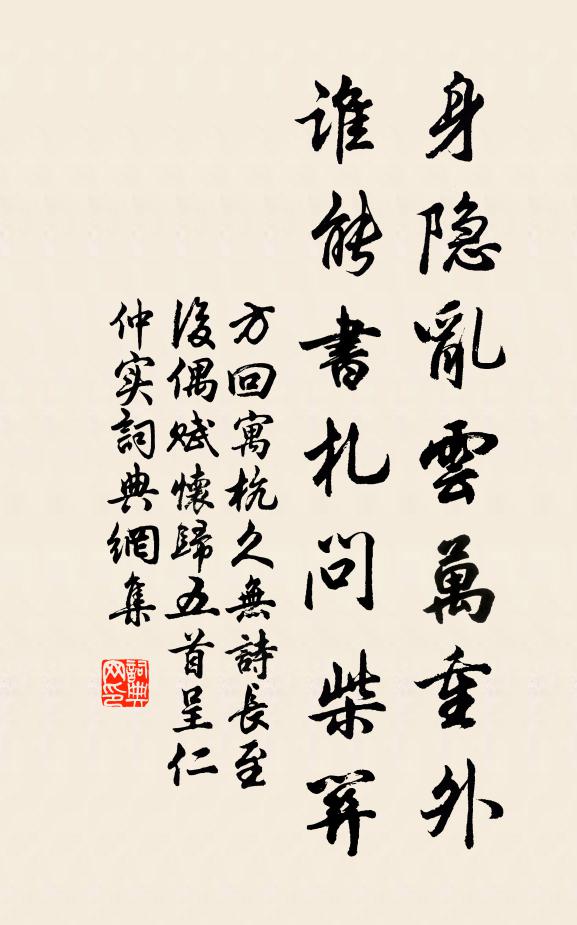 身隐亂雲萬重外
誰能書札問柴關
方回寓杭久無詩長至
後偶賦懷歸五首呈仁
仲实詞典網集
詞典
网印